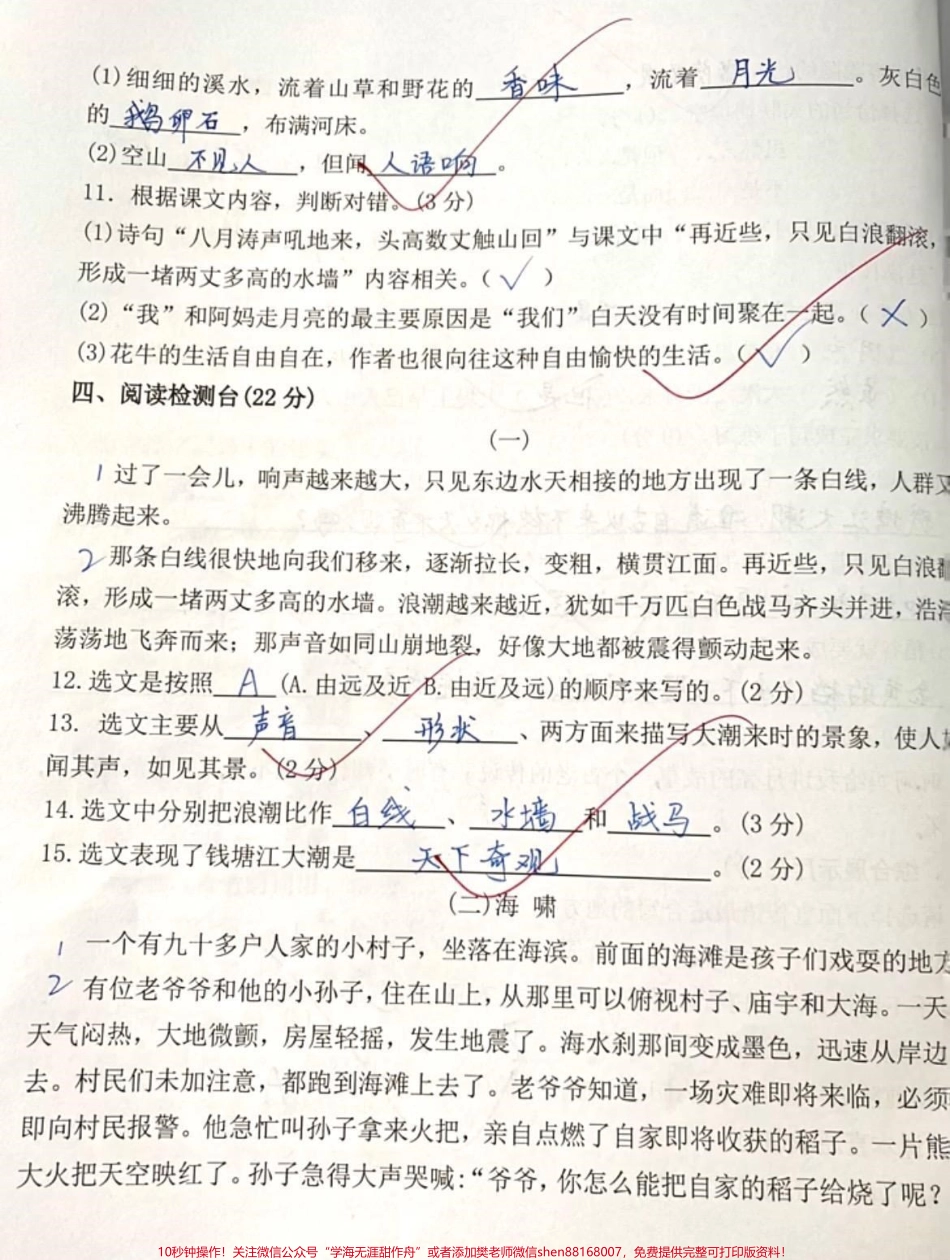 (1)细细的溪水，流着山草和野花的 香味 ，流着 月光 。灰白色
的 鹅卵石 ，布满河床。
(2)空山 不见人 ，但闻 人语响 。
11. 根据课文内容，判断对错。(3分)
(1)诗句“八月涛声吼地来，头高数丈触山回”与课文中“再近些，只见白浪翻滚，
形成一堵两丈多高的水墙”内容相关。( √ )
(2)“我”和阿妈走月亮的最主要原因是“我们”白天没有时间聚在一起。( × )
(3)花牛的生活自由自在，作者也很向往这种自由愉快的生活。( √ )
四、阅读检测台(22分)
(一)
1 过了一会儿，响声越来越大，只见东边水天相接的地方出现了一条白线，人群又
沸腾起来。
2 那条白线很快地向我们移来，逐渐拉长，变粗，横贯江面。再近些，只见白浪翻
滚，形成一堵两丈多高的水墙。浪潮越来越近，犹如千万匹白色战马齐头并进，浩浩
荡荡地飞奔而来；那声音如同山崩地裂，好像大地都被震得颤动起来。
12.选文是按照 A (A.由远及近 B.由近及远)的顺序来写的。(2分)
13. 选文主要从 声音 、 形状 、两方面来描写大潮来时的景象，使人如
闻其声，如见其景。(2分)
14.选文中分别把浪潮比作 白线 、 水墙 和 战马 。(3分)
15.选文表现了钱塘江大潮是 天下奇观 。(2分)
(二)海 啸
1 一个有九十多户人家的小村子，坐落在海滨。前面的海滩是孩子们戏耍的地方
2 有位老爷爷和他的小孙子，住在山上，从那里可以俯视村子、庙宇和大海。一天
天气闷热，大地微颤，房屋轻摇，发生地震了。海水刹那间变成墨色，迅速从岸边
去。村民们未加注意，都跑到海滩上去了。老爷爷知道，一场灾难即将来临，必须
即向村民报警。他急忙叫孙子拿来火把，亲自点燃了自家即将收获的稻子。一片熊
大火把天空映红了。孙子急得大声哭喊：“爷爷，你怎么能把自家的稻子给烧了呢？
10秒钟操作！关注微信公众号“学海无涯甜作舟”或者添加樊老师微信shen88168007，免费提供完整可打印版资料！